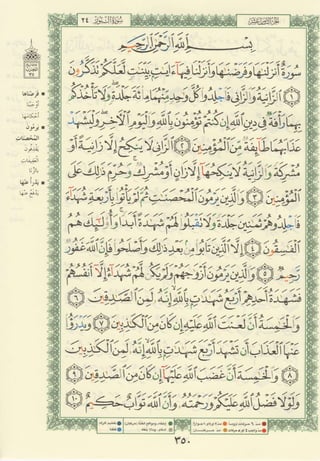 الجزء الثامن عشر
سُورَةُ النُّورِ
٢٤
بِسْمِ ٱللَّهِ ٱلرَّحْمَٰنِ ٱلرَّحِيمِ
سُورَةٌ أَنزَلْنَٰهَا وَفَرَضْنَٰهَا وَأَنزَلْنَا فِيهَآ ءَايَٰتٍۭ بَيِّنَٰتٍ لَّعَلَّكُمْ تَذَكَّرُونَ
١ ٱلزَّانِيَةُ وَٱلزَّانِى فَٱجْلِدُوا۟ كُلَّ وَٰحِدٍ مِّنْهُمَا مِا۟ئَةَ جَلْدَةٍ وَلَا تَأْخُذْكُم
بِهِمَا رَأْفَةٌ فِى دِينِ ٱللَّهِ إِن كُنتُمْ تُؤْمِنُونَ بِٱللَّهِ وَٱلْيَوْمِ ٱلْءَاخِرِ وَلْيَشْهَدْ
عَذَابَهُمَا طَآئِفَةٌ مِّنَ ٱلْمُؤْمِنِينَ ٢ ٱلزَّانِى لَا يَنكِحُ إِلَّا زَانِيَةً أَوْ
مُشْرِكَةً وَٱلزَّانِيَةُ لَا يَنكِحُهَآ إِلَّا زَانٍ أَوْ مُشْرِكٌ وَحُرِّمَ ذَٰلِكَ عَلَى
ٱلْمُؤْمِنِينَ ٣ وَٱلَّذِينَ يَرْمُونَ ٱلْمُحْصَنَٰتِ ثُمَّ لَمْ يَأْتُوا۟ بِأَرْبَعَةِ شُهَدَآءَ
فَٱجْلِدُوهُمْ ثَمَٰنِينَ جَلْدَةً وَلَا تَقْبَلُوا۟ لَهُمْ شَهَٰدَةً أَبَدًا وَأُو۟لَٰٓئِكَ هُمُ
ٱلْفَٰسِقُونَ ٤ إِلَّا ٱلَّذِينَ تَابُوا۟ مِنۢ بَعْدِ ذَٰلِكَ وَأَصْلَحُوا۟ فَإِنَّ ٱللَّهَ غَفُورٌ
رَّحِيمٌ ٥ وَٱلَّذِينَ يَرْمُونَ أَزْوَٰجَهُمْ وَلَمْ يَكُن لَّهُمْ شُهَدَآءُ إِلَّآ أَنفُسُهُمْ
فَشَهَٰدَةُ أَحَدِهِمْ أَرْبَعُ شَهَٰدَٰتٍۭ بِٱللَّهِ إِنَّهُۥ لَمِنَ ٱلصَّٰدِقِينَ ٦
وَٱلْخَٰمِسَةُ أَنَّ لَعْنَتَ ٱللَّهِ عَلَيْهِ إِن كَانَ مِنَ ٱلْكَٰذِبِينَ ٧ وَيَدْرَؤُا۟
عَنْهَا ٱلْعَذَابَ أَن تَشْهَدَ أَرْبَعَ شَهَٰدَٰتٍۭ بِٱللَّهِ إِنَّهُۥ لَمِنَ ٱلْكَٰذِبِينَ
٨ وَٱلْخَٰمِسَةَ أَنَّ غَضَبَ ٱللَّهِ عَلَيْهَآ إِن كَانَ مِنَ ٱلصَّٰدِقِينَ ٩
وَلَوْلَا فَضْلُ ٱللَّهِ عَلَيْكُمْ وَرَحْمَتُهُۥ وَأَنَّ ٱللَّهَ تَوَّابٌ حَكِيمٌ ١٠
فرضناها
أوجبنا
أحكامها
يرمون
المحصنات
يقذفون
العفيفات
بالزنا
يدرأ عنها
يدفع عنها
٣٥٠